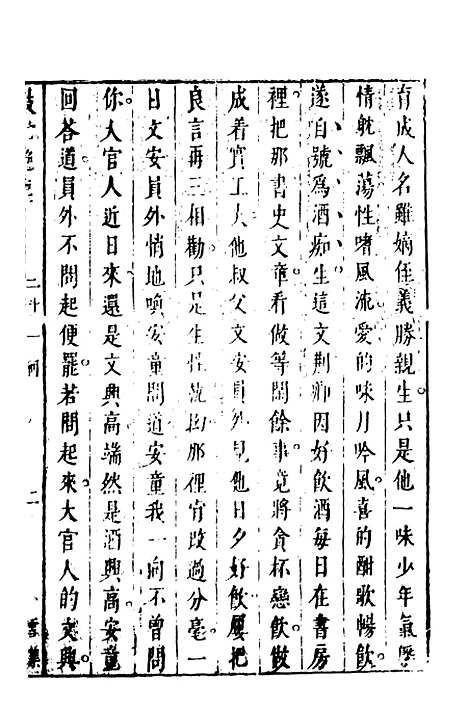 育成人名雖嫡侄義勝親生只是他一味少年氣
情躭飄蕩性嗜風流愛的味月吟風喜的酣歌暢飲
遂自號爲酒痴生這文荆卿因好飲酒每日在書房
裡把那書史文章看做等閒餘事竟將貪杯戀飲做
成着實工夫他叔父文安員外見他日夕好飲屢把
良言再三相勸只是生性執拗那裡肯改過分毫一
日文安員外悄地喚安童問道安童我一向不曾問
你大官人近日來還是文興高端然是酒興高安童
回答道員外不問起便罷若問起來大官人的文興
二十一回
二